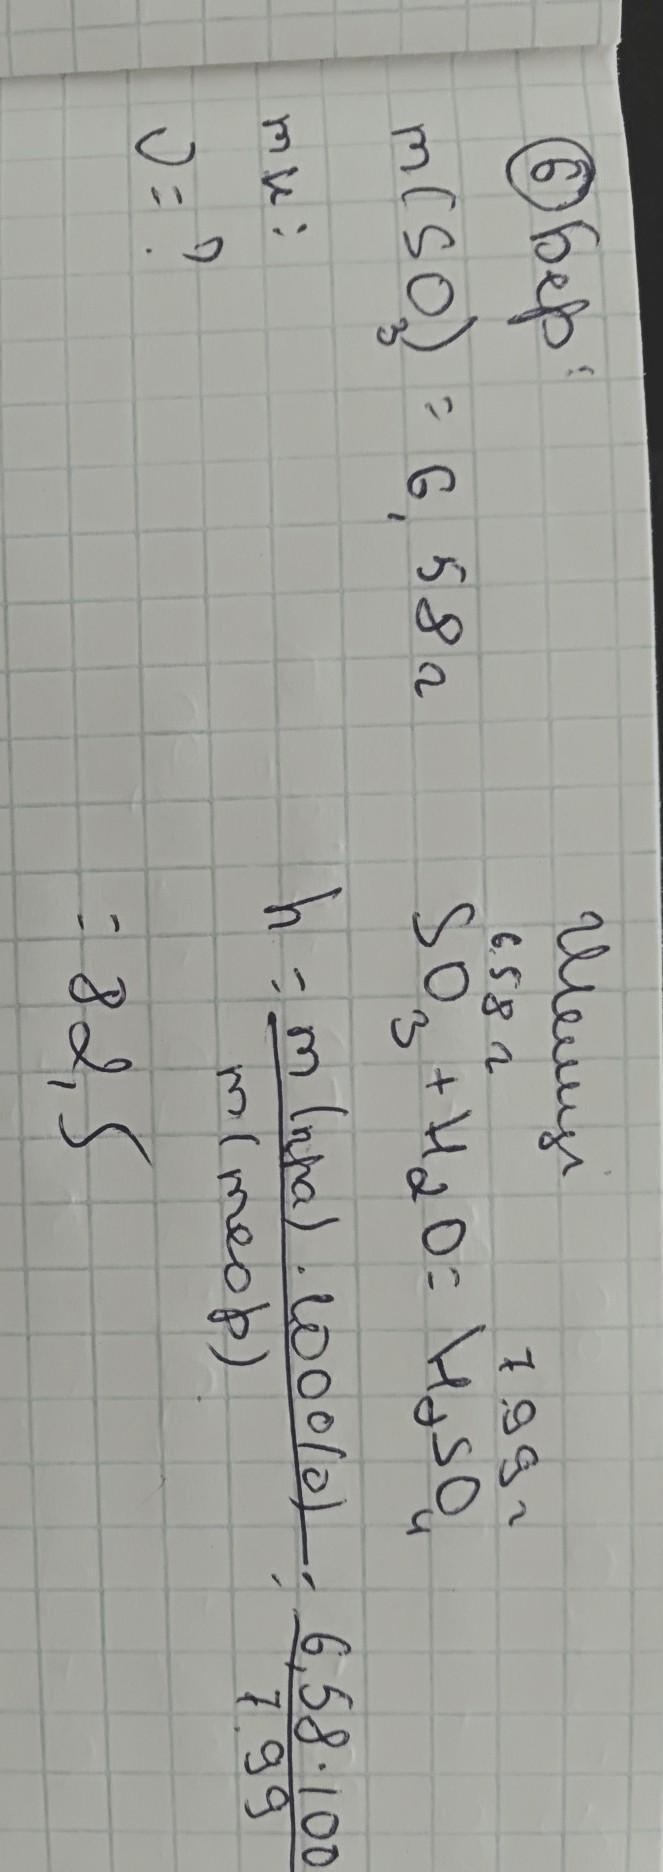 ⑥ Бер:
m(SO₃) = 6,58г
т к:
υ = ?
Шешуі
6.58г 7.99г
SO₃ + H₂O = H₂SO₄
h = m(пра).100%/m(теор) = 6,58.100/7.99
= 82,5